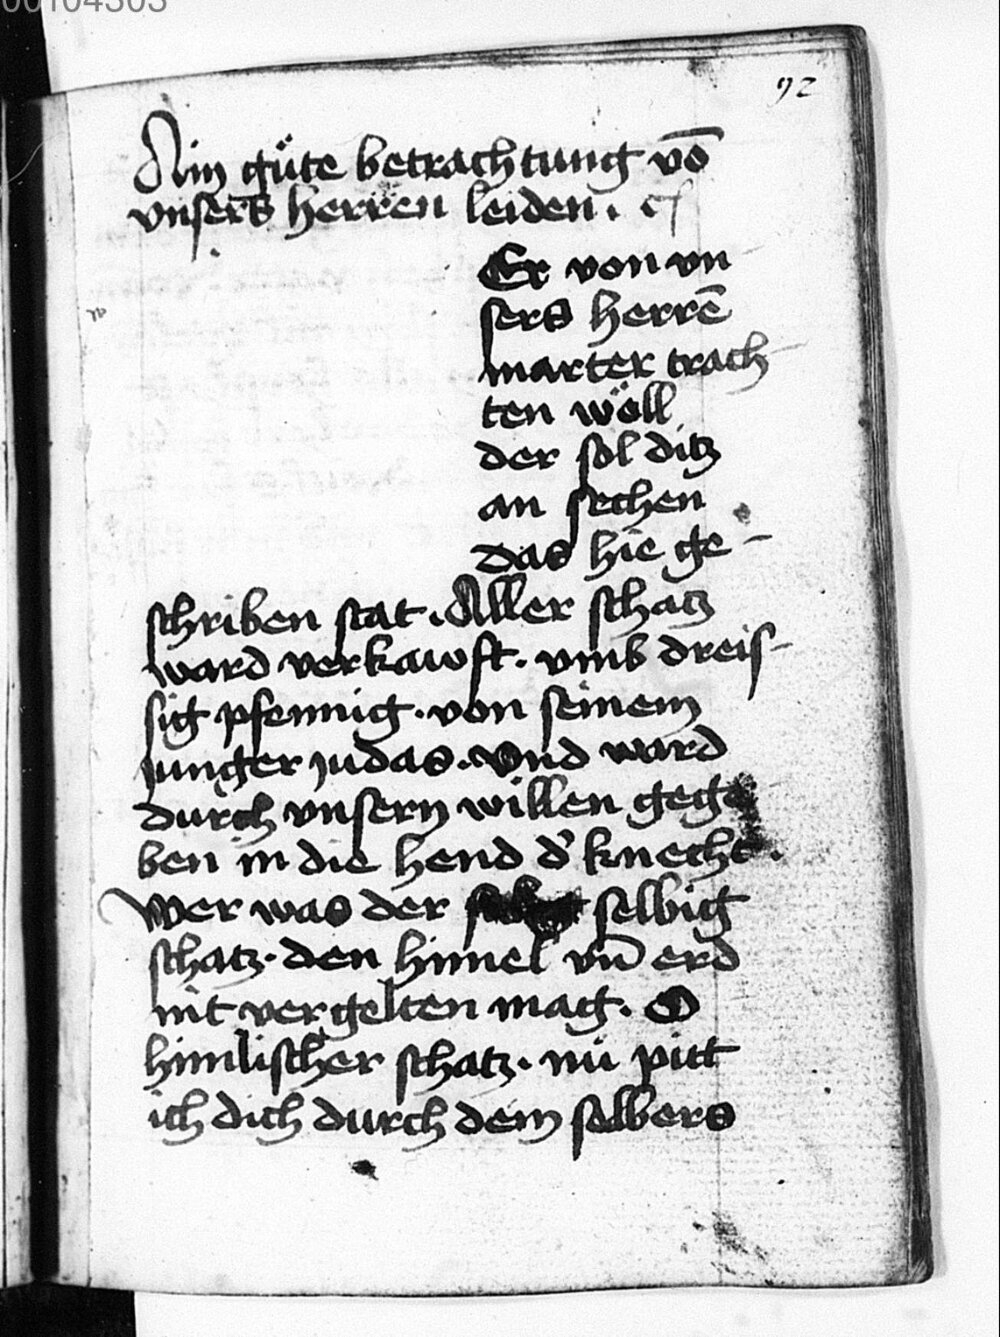 00104303
92
Ain gůte betrachtung võ
vnsers herren leiden.
Er von vn
sers herrē
marter trach
ten wöll
der sol ditz
an sechen
das hie ge-
schriben stat. Aller schatz
ward verkawft. vmb dreis-
sig pfennig. von seinem
junger judas. vnd ward
durch vnsern willen gege
ben in die hend d' knecht.
wer was der selbig
schatz. den himel vn̄ erd
nit vergelten mag. O
himlischer schatz. nu pitt
ich dich durch dem selbers